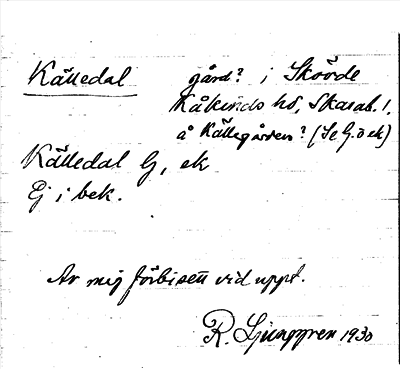 Källedal gård? i Skövde
Kåkinds hd, Skarab. l.
å Källegården? (Se G. o ek)
Källedal G, ek
Ej i bek.
Av mig förbisett vid uppt.
R. Ljunggren 1930